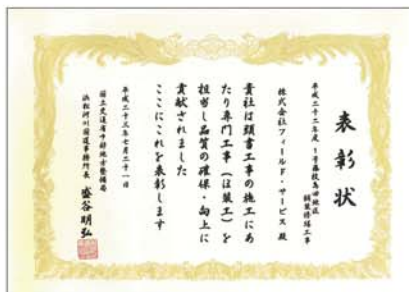 表彰状
平成二十二年度 1号藤枝島田地区
舗装修繕工事
株式会社フィールド・サービス 殿
貴社は頭書工事の施工にあ
たり専門工事(注装工)を
担当し品質の確保・向上に
貢献されました
ここにこれを表彰します
平成二十三年七月二十一日
国土交通省中部地方整備局
浜松河川国道事務所長 盛谷明弘